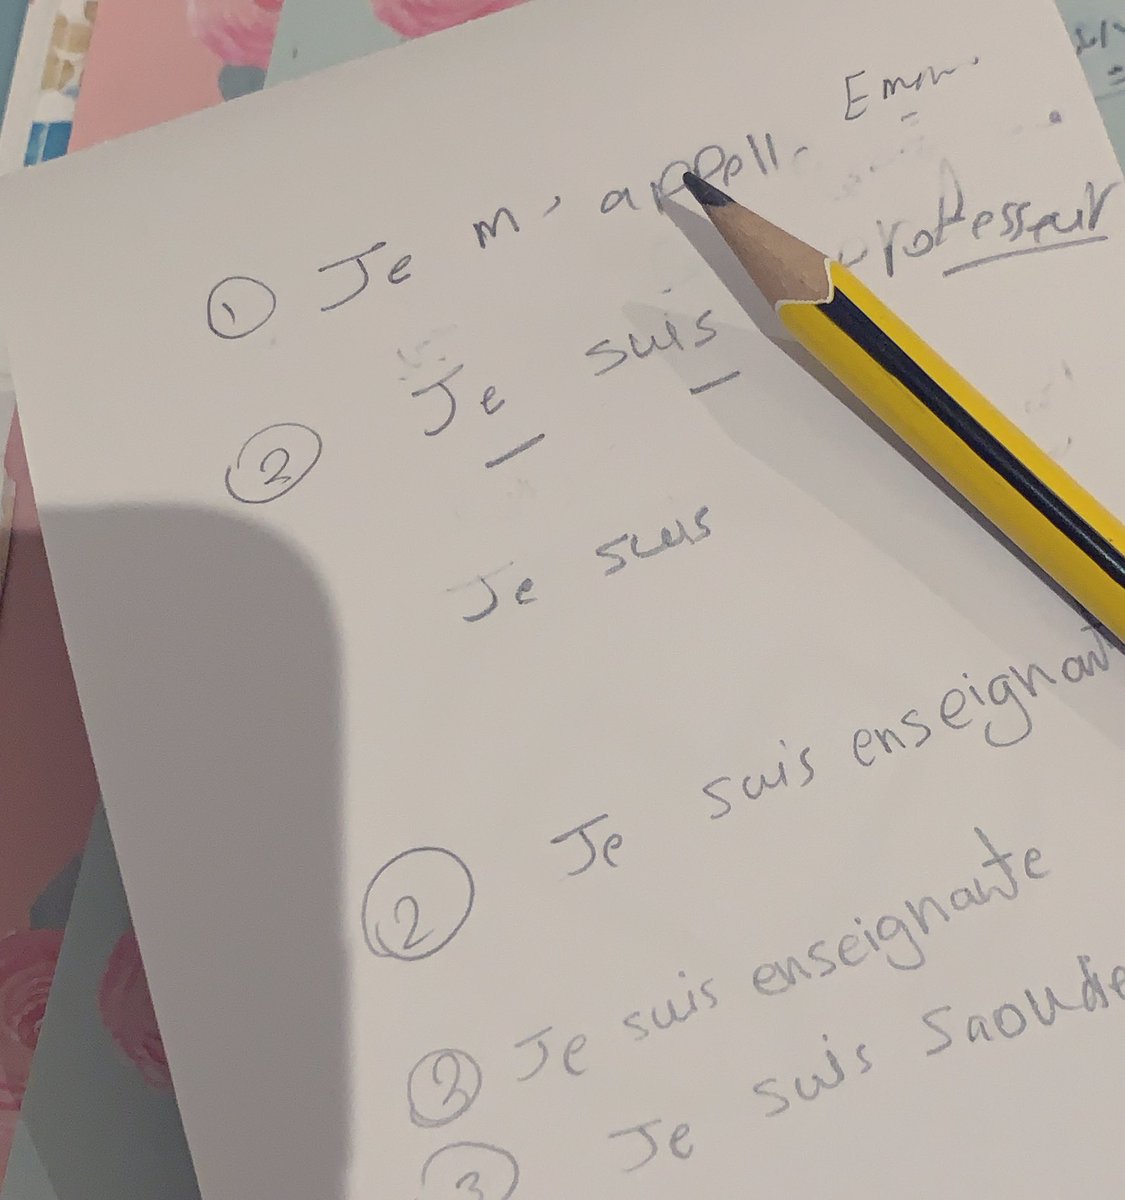 ① Je m'appell
② Je suis professeur
Je suis
② Je suis enseignant
② Je suis enseignante
③ Je suis Saoudie